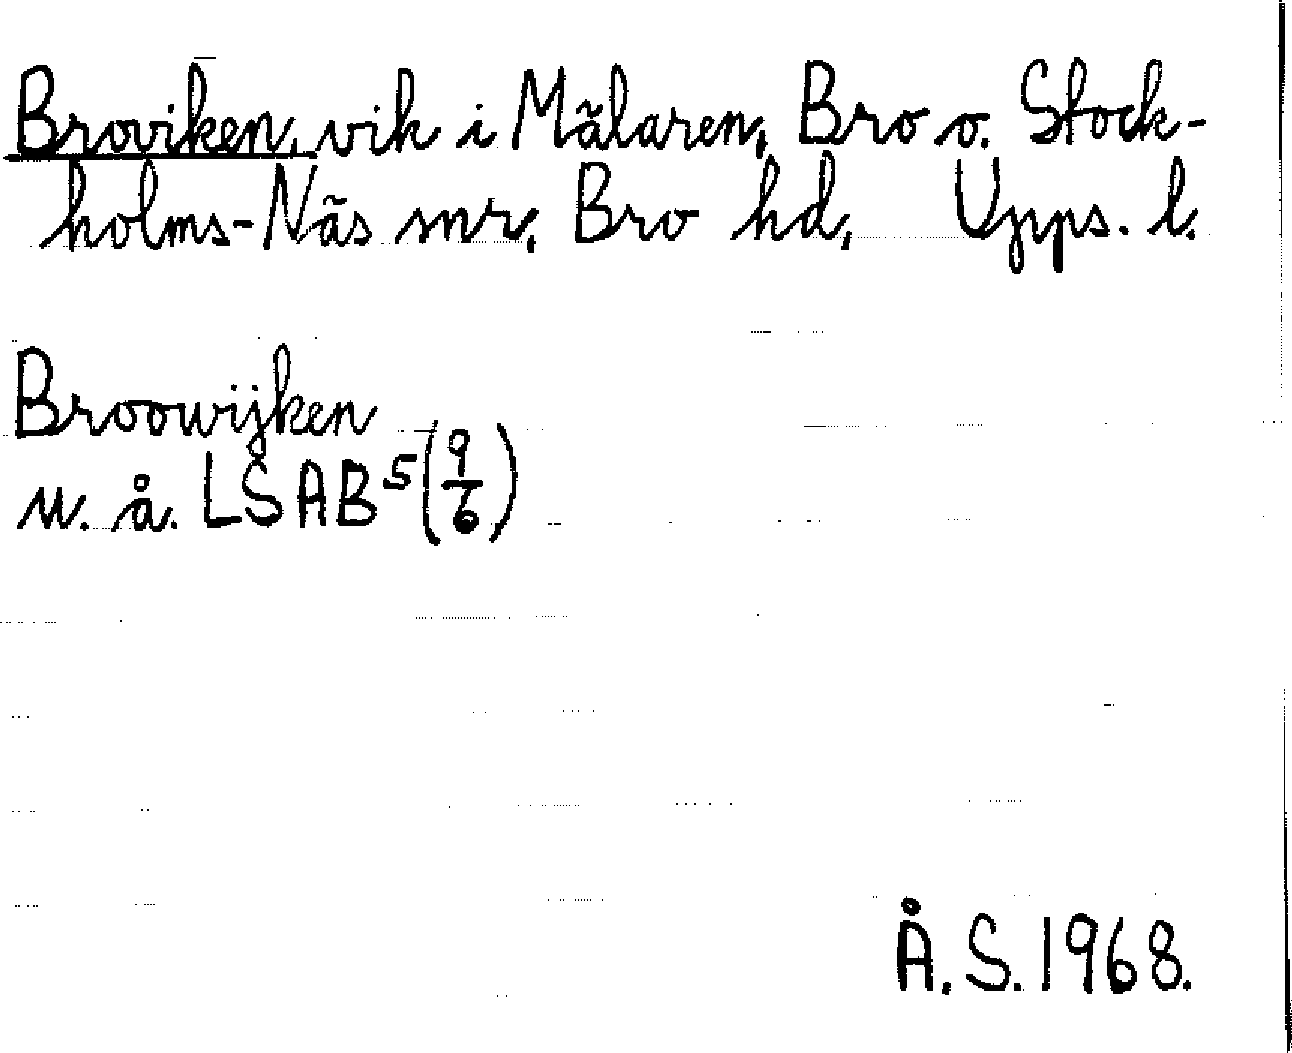 Broviken, vik i Mälaren, Bro o. Stock-
holms-Näs snr, Bro hd, Upps. l.
Broowijken
u. å. LSAB⁵(9/6)
Å.S. 1968.